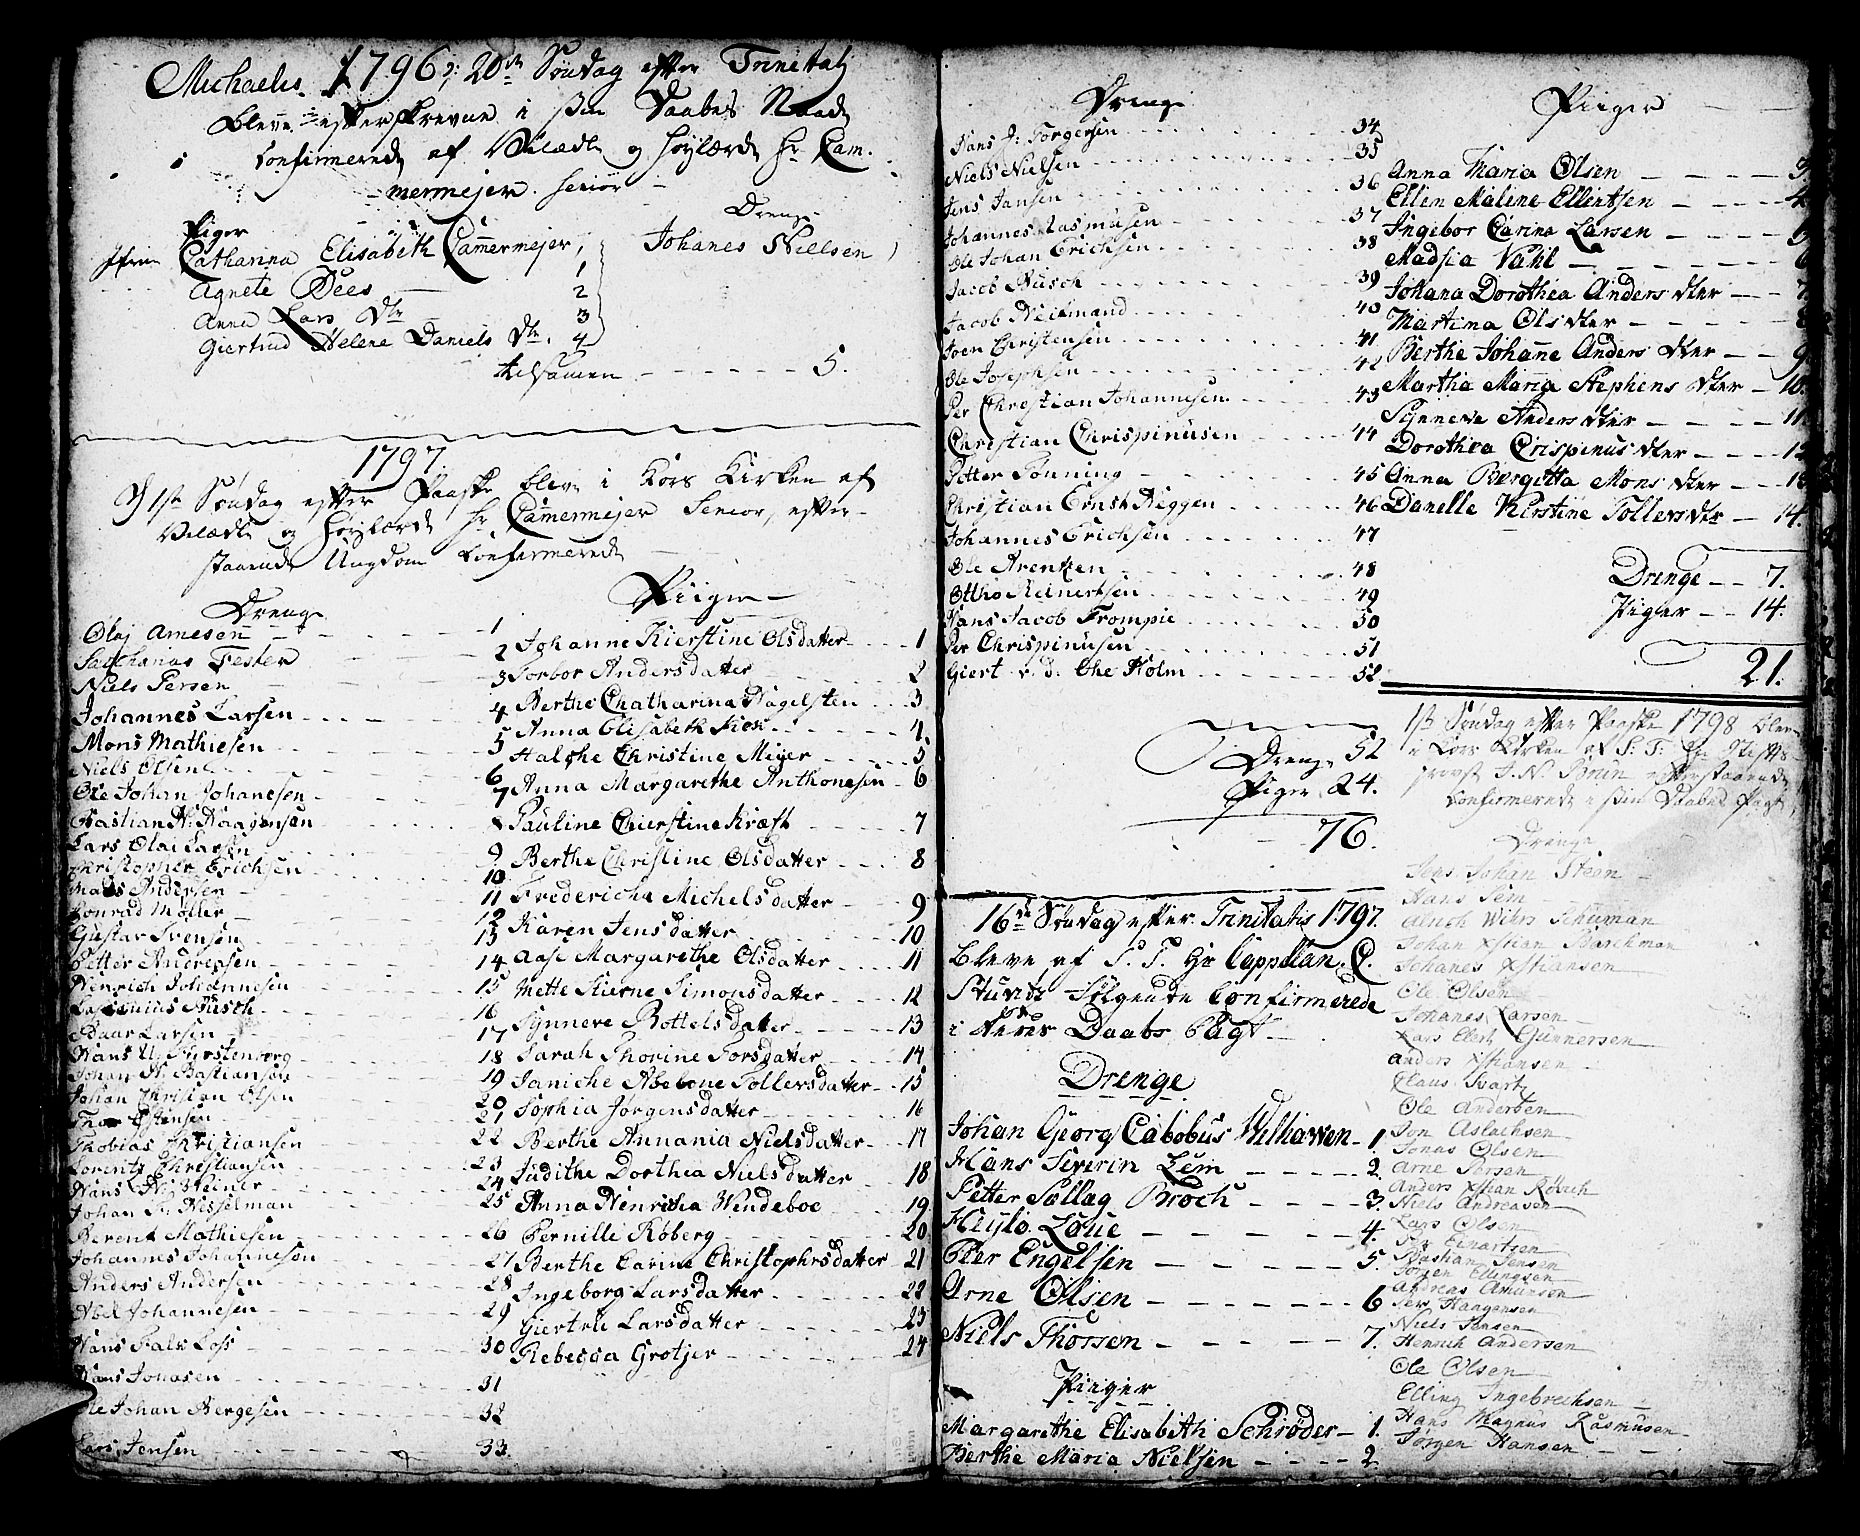 Michaelis 1796, 20de Søndag efter Trinitatis
bleve efterskrevne i sin Daabes Naade
confirmerede af Velædle og Høylærde Hr Cam-
mermejer Senior
Piger
Jfru Catharina Elisabeth Camermejer,
Agnete Dees 1 2
Anna Lars Dtr 3
Giertrud Helene Daniels Dtr. 4
Drenge
Johanes Nielsen
tilsamen - - - - - - 5.
1797
1ste Søndag efter Paaske bleve i Kors Kirken af
Velædle og Høylærde Hr Camermejer Senior, efter-
staaende Ungdom Confirmerede
Drenge
Olaj Arnesen 1
Sacharias Fester 2
Niels Persen 3
Johannes Larsen 4
Mons Mathiesen 5
Niels Olsen 6
Ole Johan Johanesen 7
Bastian H: Haagensen 8
Lars Olai Larsen 9
Christopher Erichsen 10
Mads Andersen 11
Konrad Møller 12
Gustav Svensen 13
Petter Andreasen 14
Henrich Johannesen 15
16
Larsen 17
Hans U. Furstenberg 18
Johan H. Bastiansen 19
Johan Christian Olsen 20
Thor Estensen 21
Thobias Christiansen 22
Lorentz Christiansen 23
Hans H. Weiner 24
Johan Fr. Hesselman 25
Berent Mathiesen 26
Johannes Johannesen 27
Anders Andersen 28
Abel Johannesen 29
Hans Falk Loss 30
Hans Jonasen 31
Ole Johan Bergesen 32
Lars Jensen 33.
Piiger
Johanne Kierstine Olsdatter 1
Torbor Andersdatter 2
Berthe Chatharina Nagelsten 3
Anna Elisabeth Fick 4.
Halche Christine Meyer 5
Anna Margarethe Anthonesen 6
Pauline Chierstine Kraft 7
Berthe Christine Olsdatter 8
Fredericha Michelsdatter 9
Karen Jensdatter 10
Aase Margarethe Olsdatter 11
Mette Stierne Simonsdatter 12
Synneve Bottelsdatter 13
Sarah Thorine Torsdatter 14
Janiche Abelone Tollersdatter 15
Sophia Jørgensdatter 16
Berthe Annania Nielsdatter 17
Judithe Dorthea Nielsdatter 18
Anna Henricha Wendeboe 19
Pernille Røberg 20
Berthe Carine Christophrsdatter 21
Ingeborg Larsdatter 22
Giertrue Larsdatter 23
Rebecca Grotjer 24
Drenge
Hans J: Torgersen 34
Niels Nielsen 35
Jens Jansen 36
Johannes Rasmusen 37
Ole Johan Erichsen 38
Jacob Busch 39
Jacob Neitmand 40
Joen Christensen 41
Ole Josephsen 42
Per Christian Johannesen 43
Christian Chrispinusen 44
Petter Tønning 45
Christian Ernst Heggen 46
Johannes Erichsen 47
Ole Arentzen 48
Ottho Reinertsen 49
Hans Jacob Trompie 50
Per Chrispinusen 51
Giert v. d. Ohe Holm 52
Drenge 52
Piger 24.
76.
16de Søndag efter Trinitatis 1797.
bleve af S. T. Hr Cappellan C.
Stuvitz Følgende Confirmerede
i deres Daabs Pagt
Drenge
Johan Georg Cabobus Wilhawen 1.
Hans Severin Lem 2.
Petter Sallag Broch 3.
Heylo Løue 4.
Peer Engelsen 5.
Arne Olsen 6
Niels Thorsen 7.
Piiger
Margarethe Elisabeth Schrøder 1.
Berthe Maria Nielsen 2
Piiger
Anna Maria Olsen 3
Ellen Malene Ellertsen 4
Ingebor Carina Larsen 5
Madsia Vahl 6
Johana Dorothea Anders dter 7
Martina Ols dter 8
Berthe Johane Anders dter 9
Martha Maria Stephens dter 10.
Synneve Anders dter 11
Dorothea Crispinus dter 12
Anna Bergitta Mons dter 13
Danelle Kirstine Tollers dtr 14.
Drenge 7.
Pigler 14.
21.
1ste Søndag efter Paaske 1798 bleve
i Kors Kirken af S: T: Hr Stifts-
provst J. N. Brun efterstaaende
Confirmerede i sin Daabes Pagt,
Drenge
Jens Johan Steen
Hans Sem
Ulrich Wihs Schuman
Johan Xstian Barchman
Johanes Xstiansen
Ole Olsen
Johanes Larsen
Lars Elert Gunnersen
Anders Xstiansen
Claus Svartz
Ole Andersen
Jon Aslachsen
Jonas Olsen
Arne Persen
Anders Xstian Rørich
Niels Andreasen
Lars Olsen
Per Einartsen
Bastian Jensen
Jørgen Ellingsen
Andreas Amunsen
Pers Haagensen
Niels Jensen
Henrich Andersen
Ole Olsen
Elling Ingebrechsen
Hans Magnus Rasmusen
Jørgen Hansen